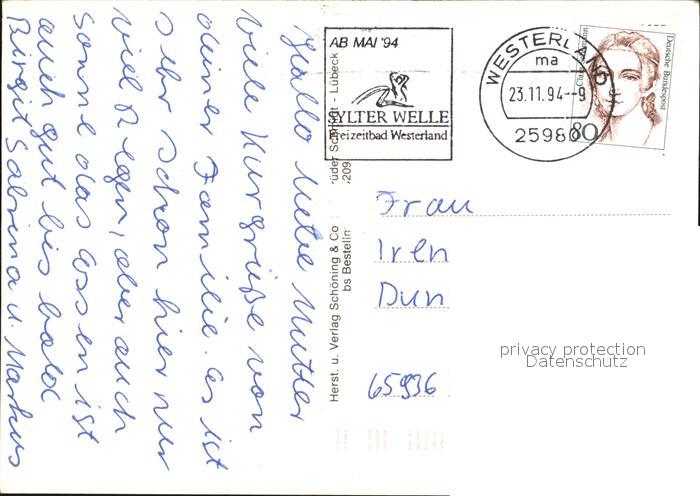 Hallo liebe Mutter
viele Kurgrüße von
deiner Familie. es ist
sehr schön hier nur
viel Regen, aber auch
Sonne das Essen ist
auch gut bis bald
Birgit Sabrina u. Markus
Herst. u. Verlag Schöning & Co
- Lübeck
bs Bestelln
AB MAI '94
SYLTER WELLE
Freizeitbad Westerland
WESTERLAND
ma
23.11.94--9
25980
80
Deutsche Bundespost
Frau
Iren
Dun
65936
privacy protection
Datenschutz